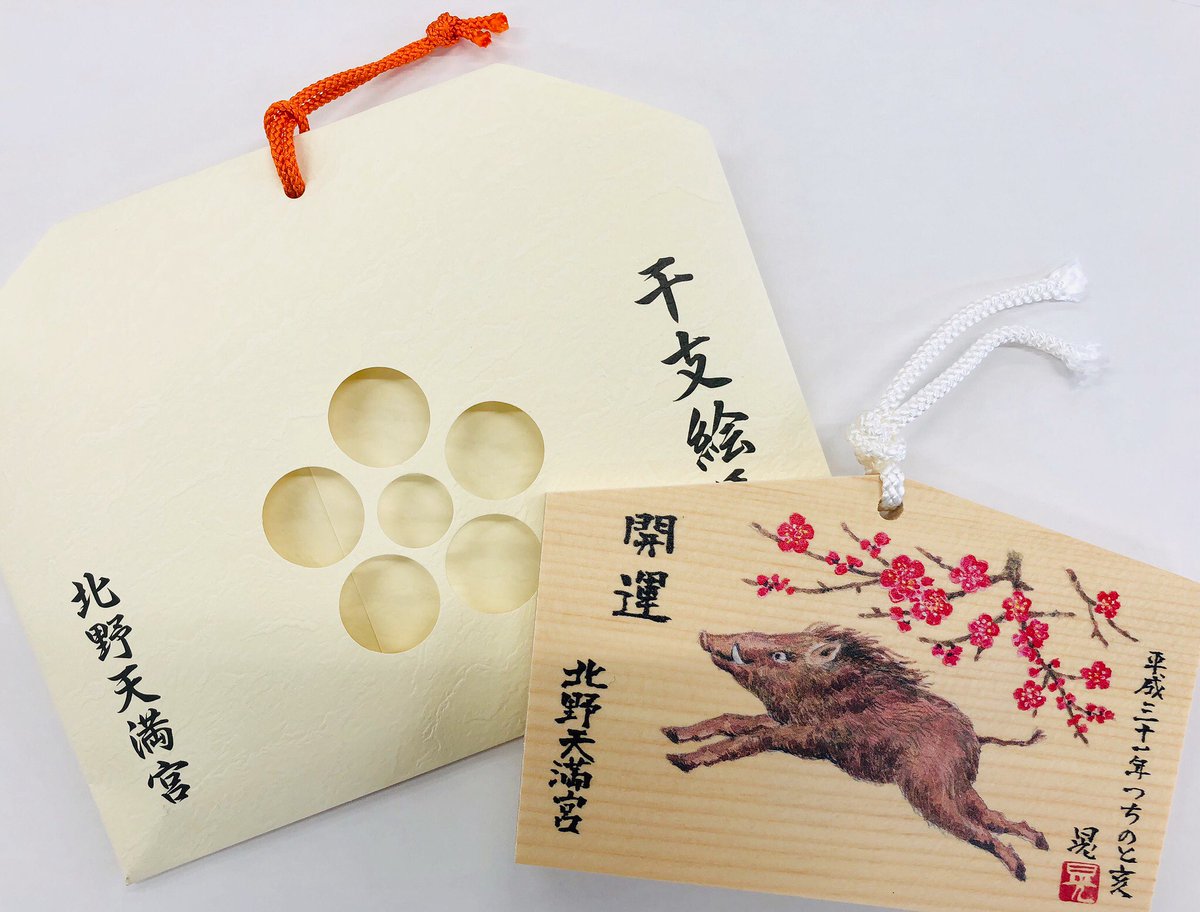 干支絵
北野天満宮
開運
北野天満宮
平成三十一年つちのと亥
晃
晃